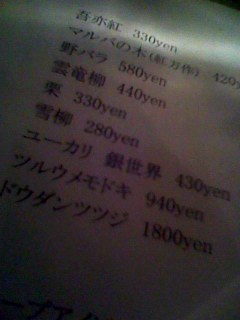 吾亦紅 330yen
マルバの木(紅万作) 420y
野バラ 580yen
雲竜柳 440yen
栗 330yen
雪柳 280yen
ユーカリ 銀世界 430yen
ツルウメモドキ 940yen
ドウダンツツジ 1800yen